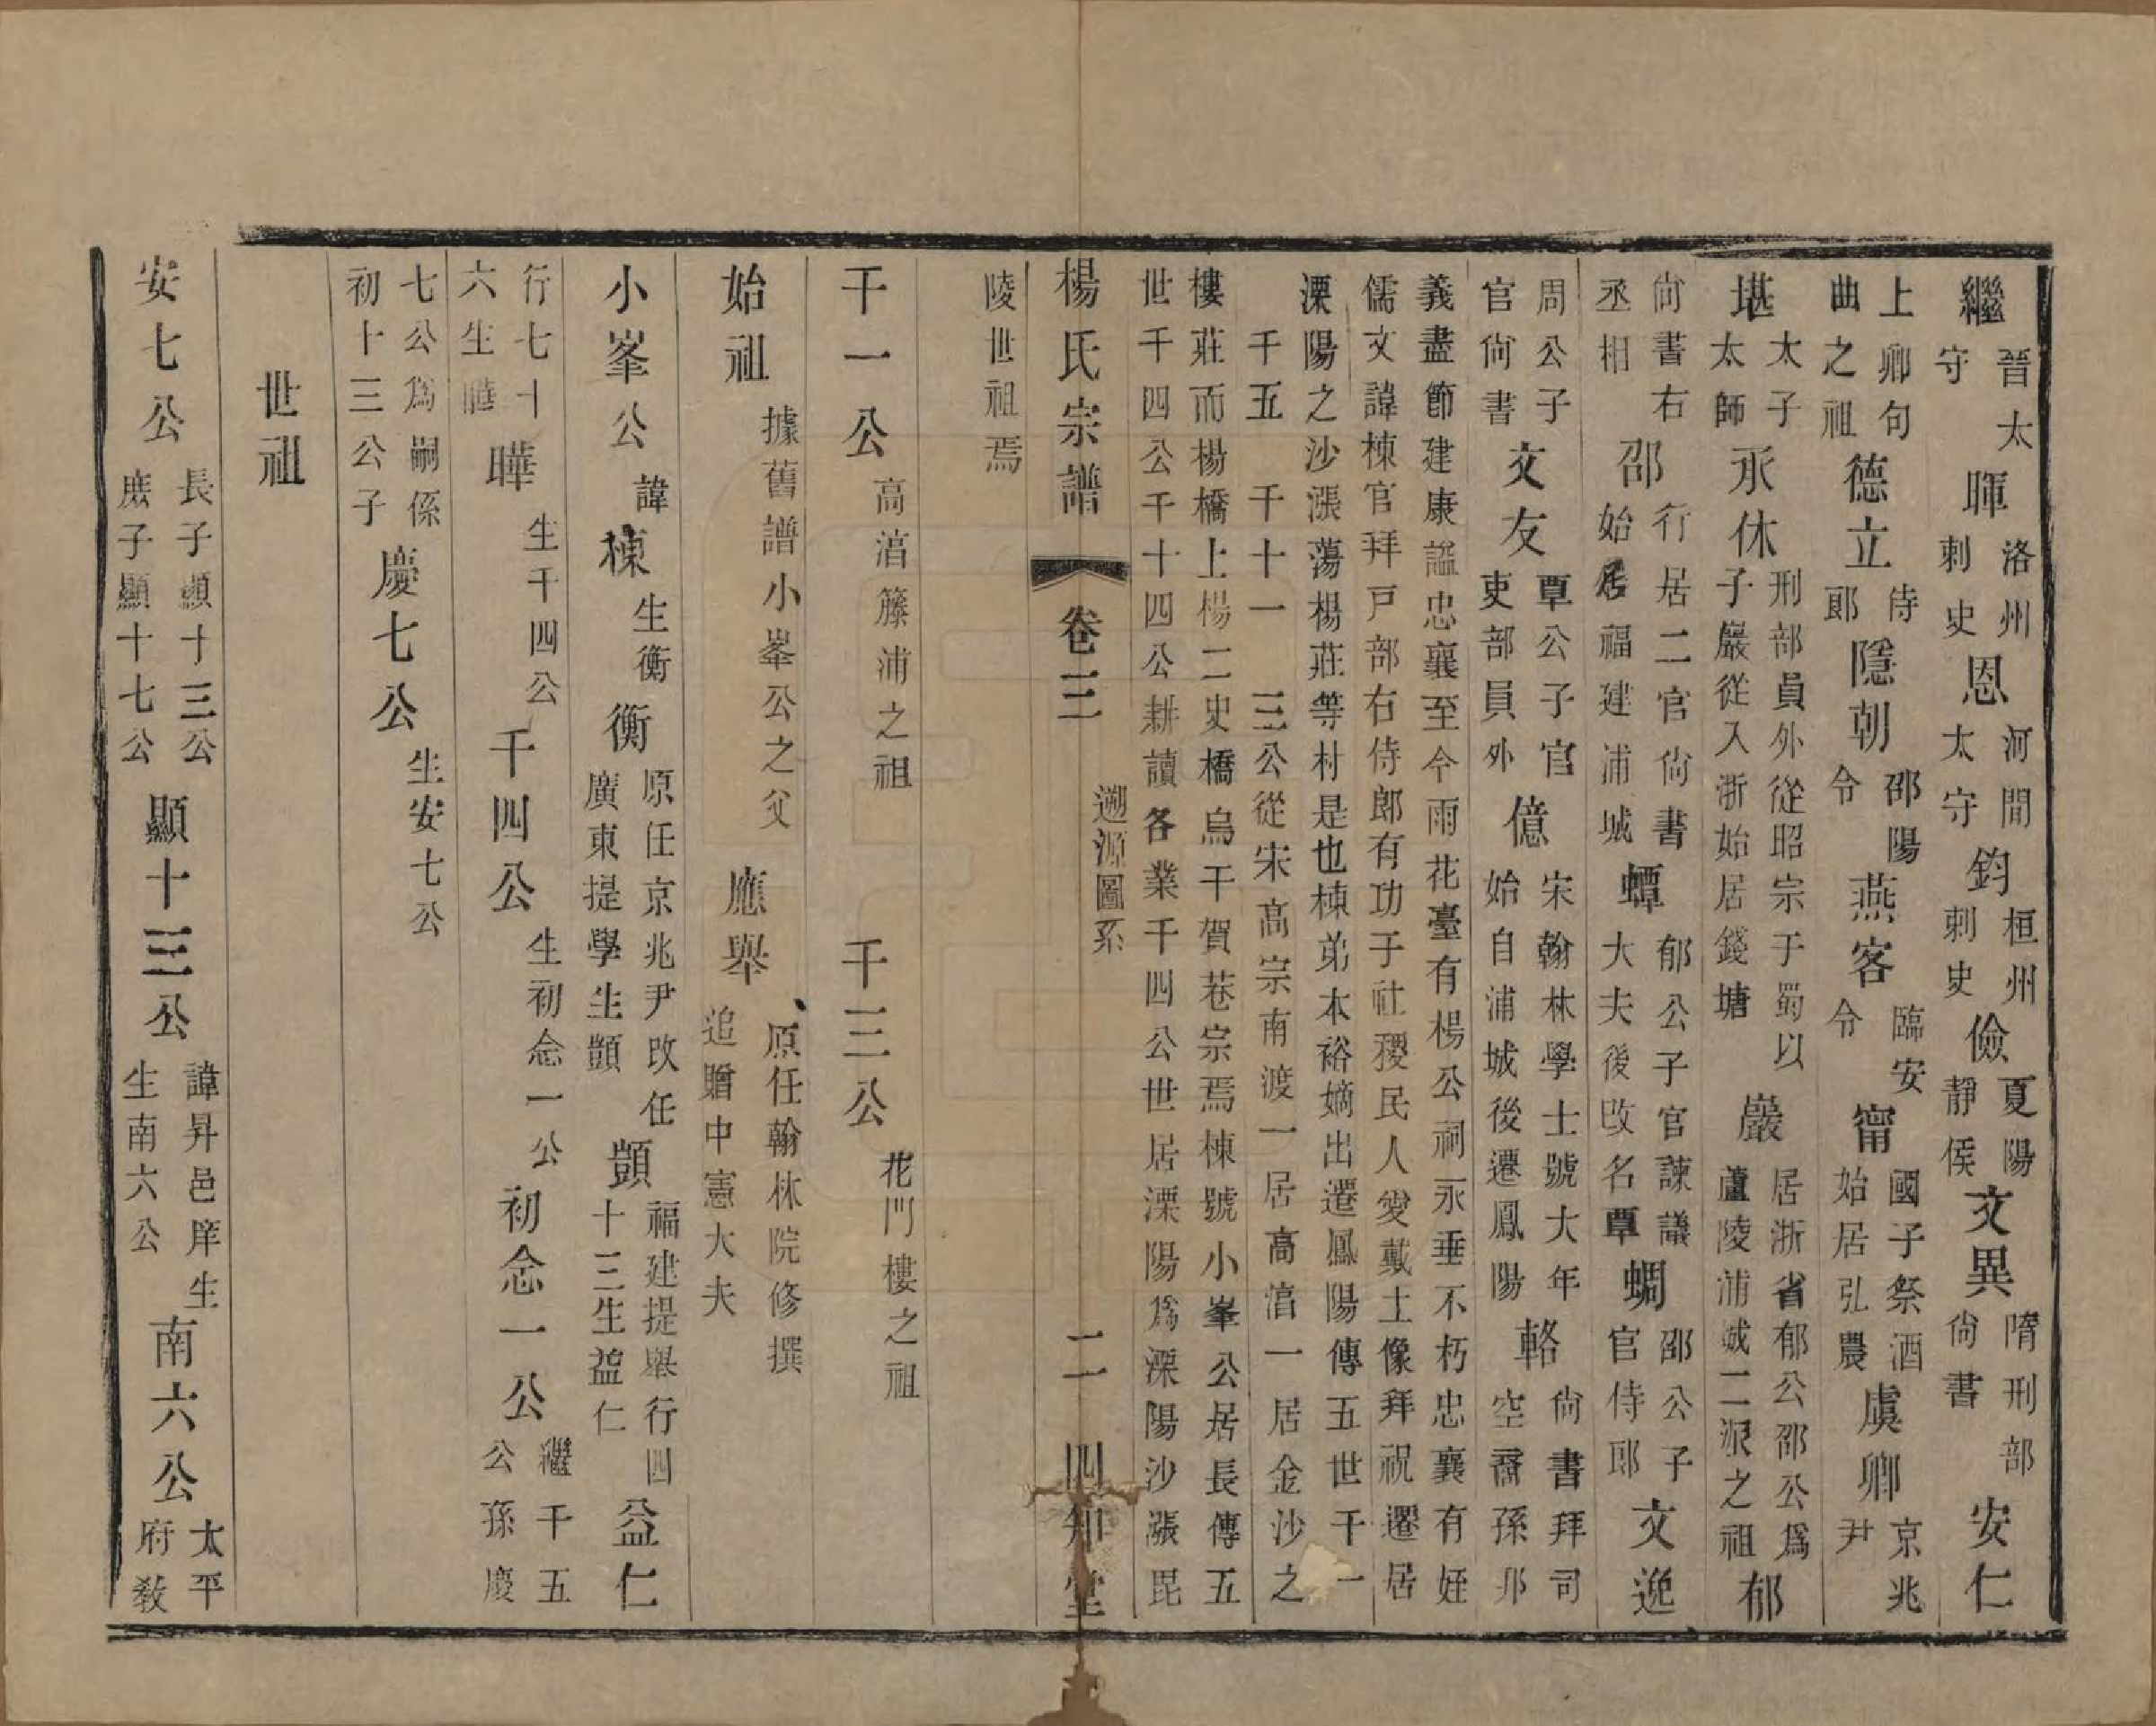 繼晉太守暉洛州刺史恩河間太守鈞桓州刺史儉夏陽靜侯文異隋刑部尙書安仁
上卿句曲之祖德立侍郞隱朝邵陽令燕客臨安令甯國子祭酒始居弘農虞卿京兆尹
堪太子太師承休刑部員外從昭宗于蜀以子巖從入浙始居錢塘巖居浙省郁公邵公爲蘆陵浦城二派之祖郁
尙書右丞相邵行居二官尙書始居福建浦城蟫郁公子官諫議大夫後改名覃蜩邵公子官侍郎文逸
周公子官尙書文友覃公子官吏部員外億宋翰林學士號大年始自浦城後遷鳳陽輅尙書拜司空裔孫邦
義盡節建康謚忠襄至今雨花臺有楊公祠永垂不朽忠襄有姪
儒文諱棟官拜戸部右侍郎有功于社稷民人愛戴土像拜祝遷居
溧陽之沙漲蕩楊莊等村是也棟弟本裕嫡出遷鳳陽傳五世千一
千五 千十一 三公從宋高宗南渡一居高湻一居金沙之
樓莊而楊橋上楊二史橋烏干賀巷宗焉棟號小峯公居長傳五
世千四公千十四公耕讀各業千四公世居溧陽爲溧陽沙漲毘
楊氏宗譜 卷三 遡源圖系 二一 四知堂
陵世祖焉
千一公高湻籐浦之祖 千三公花門樓之祖
始祖據舊譜小峯公之父 應舉原任翰林院修撰追贈中憲大夫
小峯公諱棟生衡 衡原任京兆尹改任廣東提學生顗 顗福建提舉行四十三生益仁 益仁
行七十六生曄 曄生千四公 千四公生初念一公 初念一公繼千五公孫慶
七公爲嗣係初十三公子 慶七公生安七公
世祖
安七公長子顯十三公庶子顯十七公 顯十三公諱昇邑庠生生南六公 南六公太平府敎